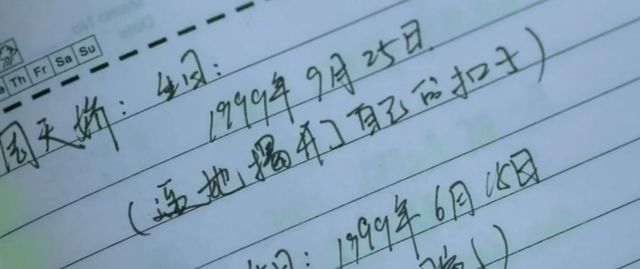 Th Fr Sa Su
周天娇：生日：
1999年9月25日
（遥地揭开了自己的扣子）
日：1999年6月15日